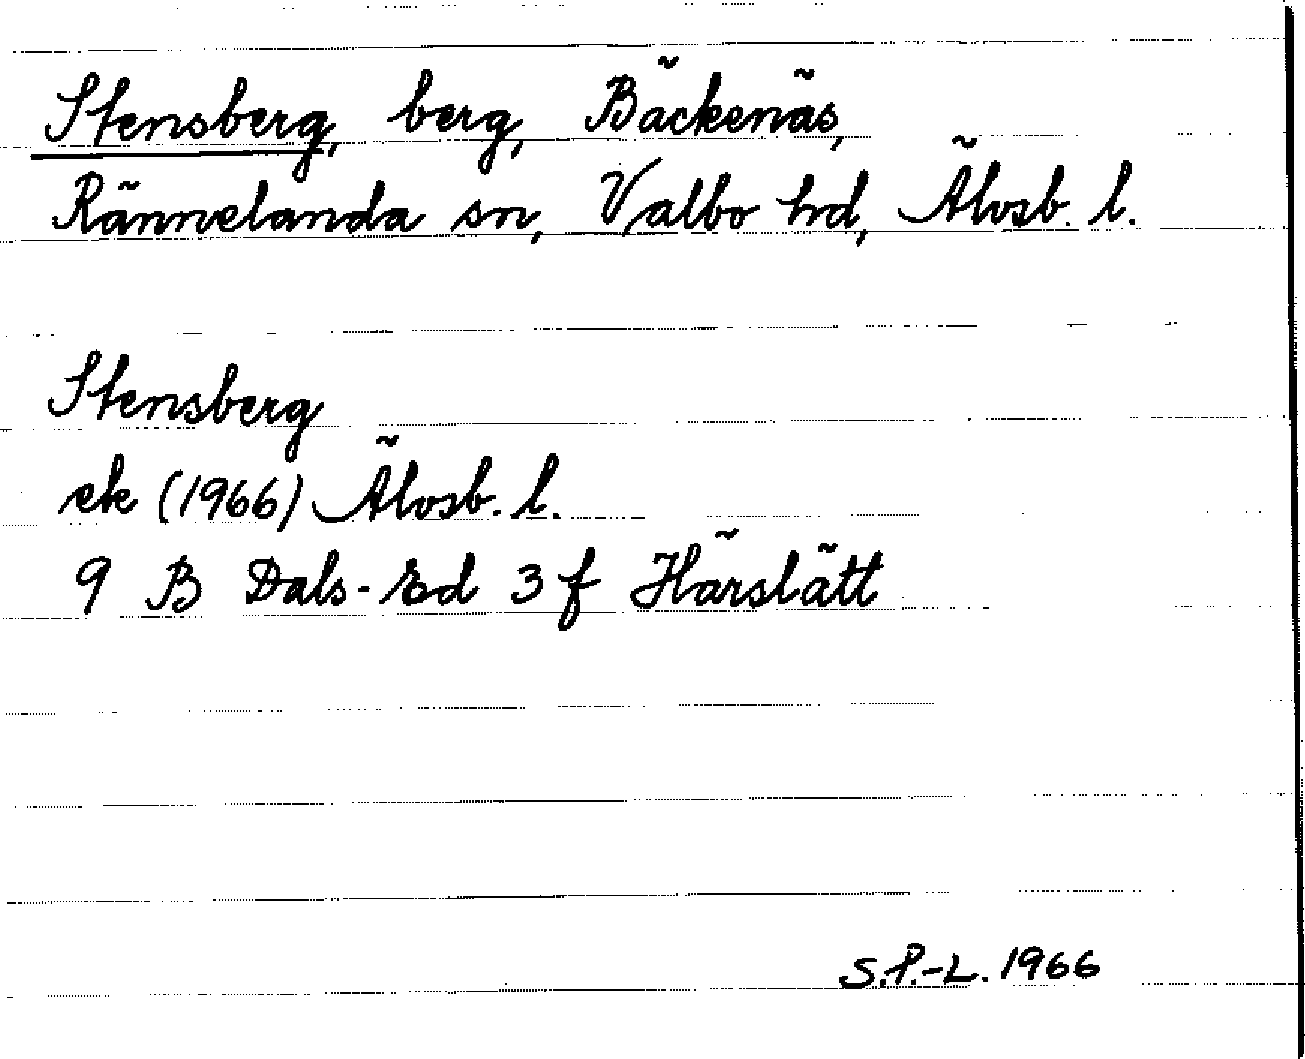 Stensberg, berg, Bäckenäs,
Rännelanda sn, Valbo hd, Älvsb. l.
Stensberg
ek (1966) Älvsb. l.
9 B Dals-Ed 3 f Härslätt
S.P.-L. 1966